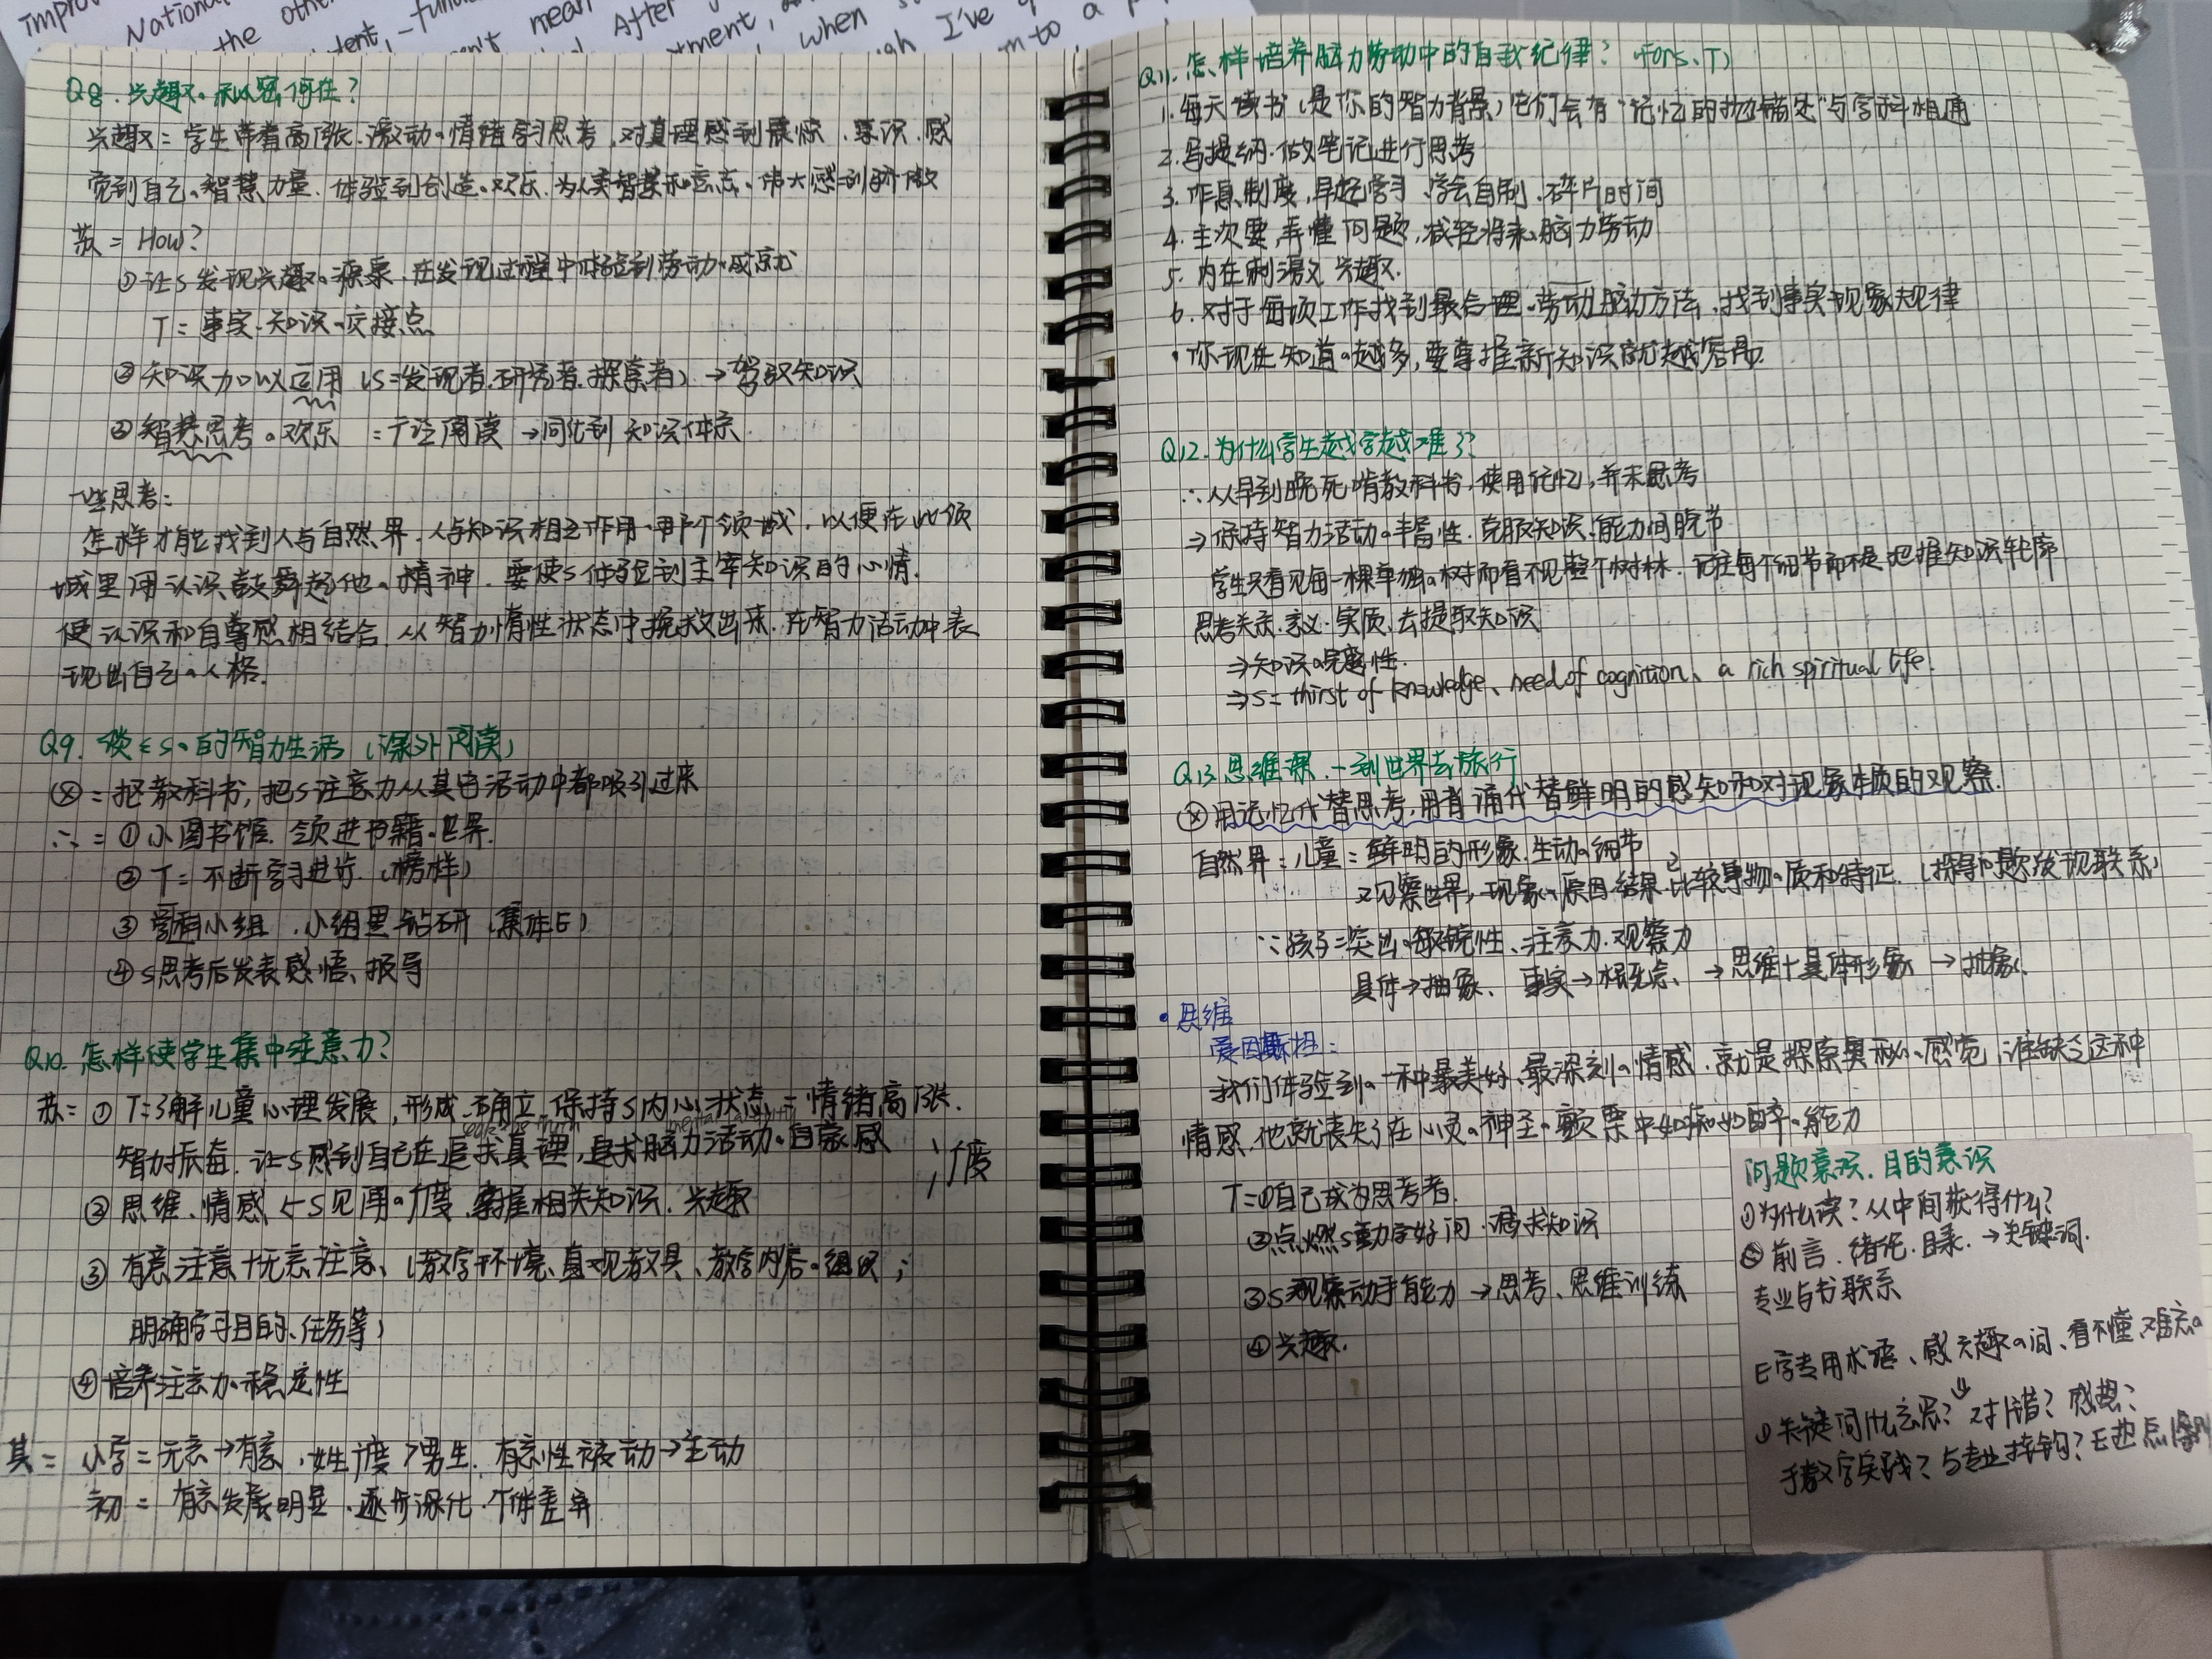 Q8. 兴趣。秘密何在?
兴趣 = 学生带着高涨、激动。情绪学习思考,对真理感到震惊、意识、感
觉到自己。智慧力量、体验到创造。欢乐、为人类智慧和意志。伟大感到骄傲
苏 = How?
①让S发现兴趣。源泉、在发现过程中体验到劳动。成就
T = 事实、知识。交接点
②知识加以运用 (S=发现者、研究者、探索者) → 驾驭知识
③智慧思考。欢乐 = 广泛阅读 → 同化到 知识体系
一些思考:
怎样才能找到人与自然界、人与知识相互作用。那个领域,以便在此领
域里用认识鼓舞起他。精神、要使S体验到主宰知识的心情.
使认识和自尊感相结合、从智力惰性状态中挽救出来、在智力活动中表
现出自己。人格.
Q9. 谈谈S。的智力生活 (课外阅读)
ⓧ = 抠教科书,把S注意力从其它活动中都吸引过来
∴ = ①小图书馆、领进书籍。世界.
② T = 不断学习进步 (榜样)
③ 学科小组 、小组里钻研 (集体E)
④ S思考后发表感悟、报导
Q10. 怎样使学生集中注意力?
苏 = ① T=了解儿童心理发展,形成、确立、保持S内心状态 = 情绪高涨、
智力振奋、让S感到自己在追求真理,追求脑力活动。自豪感
② 思维、情感 ← S见闻。广度、掌握相关知识、兴趣
广度
③ 有意注意+无意注意、(教学环境、直观教具、教学内容。组织;
明确学习目的、任务等)
④ 培养注意力。稳定性
其 = 小学 = 无意→有意,女生广度>男生、有意性被动→主动
初 = 有意发展明显、逐步深化、个体差异
Q11. 怎样培养脑力劳动中的自我纪律? (for S、T)
1. 每天读书 (是你的智力背景) 它们会有“记忆的 " 与学科相通
2. 写提纲、做笔记进行思考
3. 作息制度,早起学习、学会自制、碎片时间
4. 主次要,弄懂问题,减轻将来。脑力劳动
5. 内在刺激 兴趣.
6. 对于每项工作找到最合理。劳动脑动方法、找到事实现象规律
· 你现在知道。越多,要掌握新知识就越容易
Q12. 为什么学生越学越难了?
∴ 从早到晚死啃教科书,使用记忆,并未思考
⇒ 保持智力活动。丰富性、克服知识、能力间脱节
学生只看见每一棵单独。树而看不见整个树林、记住每个细节而不是把握知识轮廓
思考关系、意义、实质、去提取知识
⇒ 知识。完整性.
⇒ S= thirst of knowledge、need of cognition、a rich spiritual life.
Q13 思维课 -- 到世界去旅行
ⓧ 用记忆代替思考,用背诵代替鲜明的感知和对现象本质的观察.
自然界: 儿童 = 鲜明的形象、生动。细节
观察世界,现象。原因结果、比较事物。质和特征、(探寻问题发现联系)
∵ 孩子=突出。敏锐性、注意力、观察力
具体→抽象、事实→概念、→思维+具体形象→抽象.
• 思维
爱因斯坦:
我们体验到。一种最美好、最深刻。情感,就是探索奥秘。感觉,谁缺乏这种
情感,他就丧失了在心灵。神圣。颤栗中如痴如醉。能力
T=①自己成为思考者.
②点燃S勤学好问、渴求知识
③S观察动手能力 → 思考、思维训练
④ 兴趣.
问题意识、目的意识
① 为什么读? 从中间获得什么?
② 前言、绪论、目录、→ 关键词.
专业与书联系
E学专用术语、感兴趣。词、看不懂、难忘。
① 关键词什么意思? 对/错? 感想?
教学实践? 与专业挂钩?